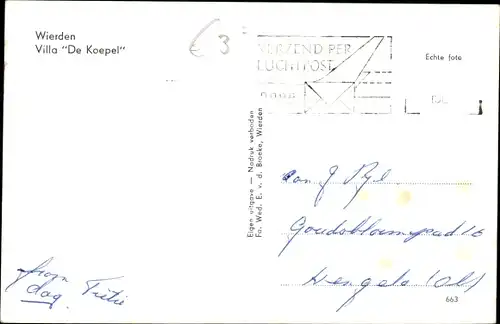 Wierden
Villa "De Koepel"
€ 3
VERZEND PER
LUCHTPOST
Echte foto
Eigen uitgave — Nadruk verboden
Fa. Wed. E. v. d. Broeke, Wierden
van J
Goudsbloempad 16
Hengelo (O)
dag
663